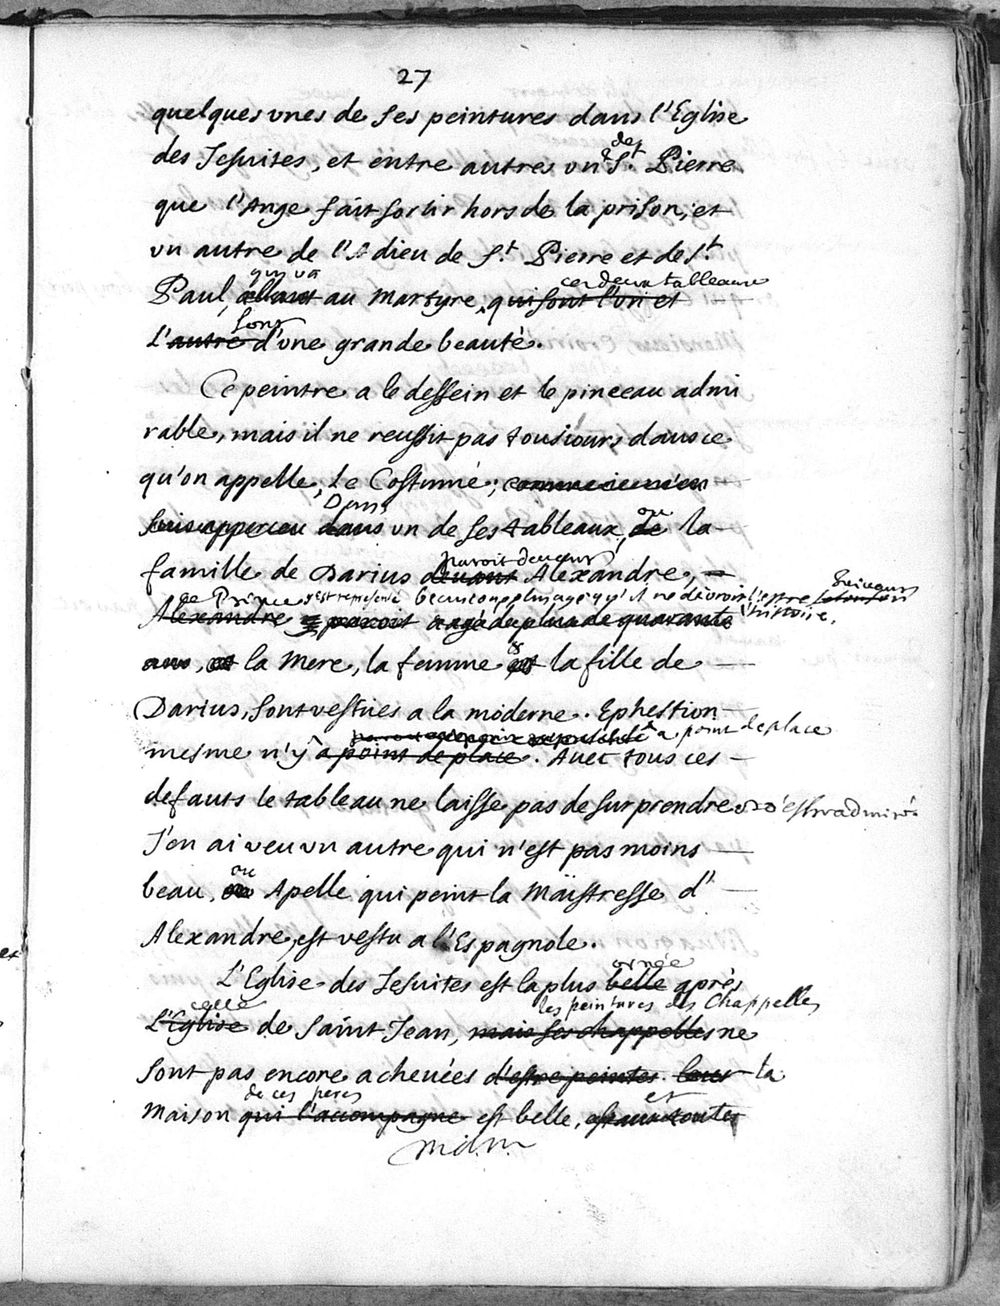 27
quelques vnes de ses peintures dans l'Eglise
des
des Jesuites, et entre autres vn St. Pierre
que l'Ange fait sortir hors de la prison, et
vn autre de l'Adieu de St. Pierre et de St.
qui va ces deux tableaux
Paul, allant au Martyre, qui sont l'un et
sont
L'autre d'vne grande beauté.
Ce peintre a le dessein et le pinceau admi
rable, mais il ne reussit pas tousiours dans ce
qu'on appelle, le Costume; comme ie m'en
Dans ou
suis apperceu dans vn de ses tableaux, de la
paroit deuant
famille de Darius deuant Alexandre,
ce Prince y est representé beaucoup plus agé qu'il ne devroit l'estre suivant
l'histoire.
Alexandre y paroit agé de plus de quarante
ans, et la Mere, la femme & la fille de
Darius, sont vestües a la moderne. Ephestion
a point de place
mesme n'y a point de place. Avec tous ces
defauts le tableau ne laisse pas de surprendre & d'estre admiré.
J'en ai veu vn autre qui n'est pas moins
ou
beau, Apelle qui peint la Maistresse d'
Alexandre, est vestu a l'Espagnole.
ornée
L'Eglise des Jesuites est la plus belle après
celle les peintures des Chappelles
L'Eglise de Saint Jean, mais ses chappelles ne
sont pas encore acheuées d'estre peintes. la
de ces peres et
Maison qui l'accompagne est belle,